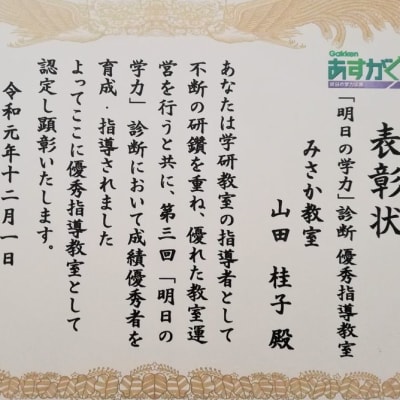 Gakken
あすがく
表彰状
「明日の学力」診断 優秀指導教室
みさか教室
山田 桂子 殿
あなたは学研教室の指導者として
不断の研鑽を重ね、優れた教室運
営を行うと共に、第三回「明日の
学力」診断において成績優秀者を
育成・指導されました
よってここに優秀指導教室として
認定し顕彰いたします。
令和元年十二月一日